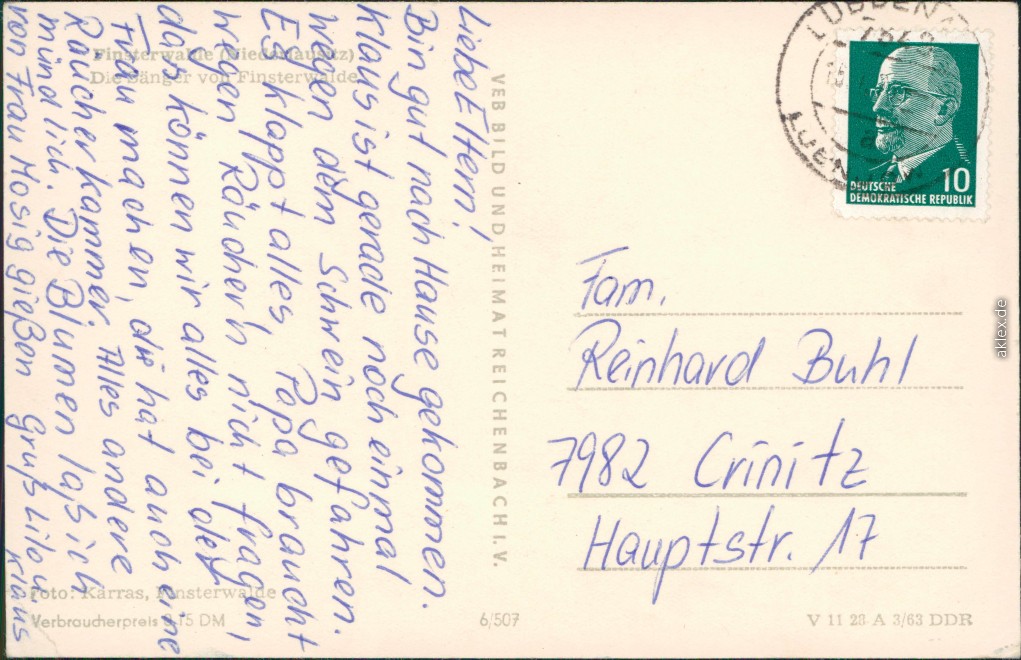 Finsterwalde (Niederlausitz)
Die Sänger von Finsterwalde
Liebe Eltern!
Bin gut nach Hause gekommen.
Klaus ist gerade noch einmal
wegen dem Schwein gefahren.
Es klappt alles, Papa braucht
wegen Räuchern nicht fragen,
das können wir alles bei der
Frau machen, die hat auch eine
Räucherkammer. Alles andere
mündlich. Die Blumen laß ich
von Frau Mosig gießen Gruß Lilo u.
Klaus
VEB BILD UND HEIMAT REICHENBACH I. V.
LÜBBENAU
7543
DEUTSCHE
DEMOKRATISCHE REPUBLIK
10
Fam.
Reinhard Buhl
7982 Crinitz
Hauptstr. 17
Foto: Karras, Finsterwalde
Verbraucherpreis 0,15 DM
6/507
V 11 28 A 3/63 DDR
aklex.de